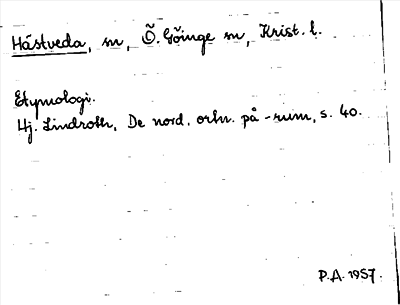 Hästveda, sn, Ö. Göinge sn, Krist. l.
Etymologi.
Hj. Lindroth, De nord. ortn. på -rum, s. 40.
P.A. 1957.